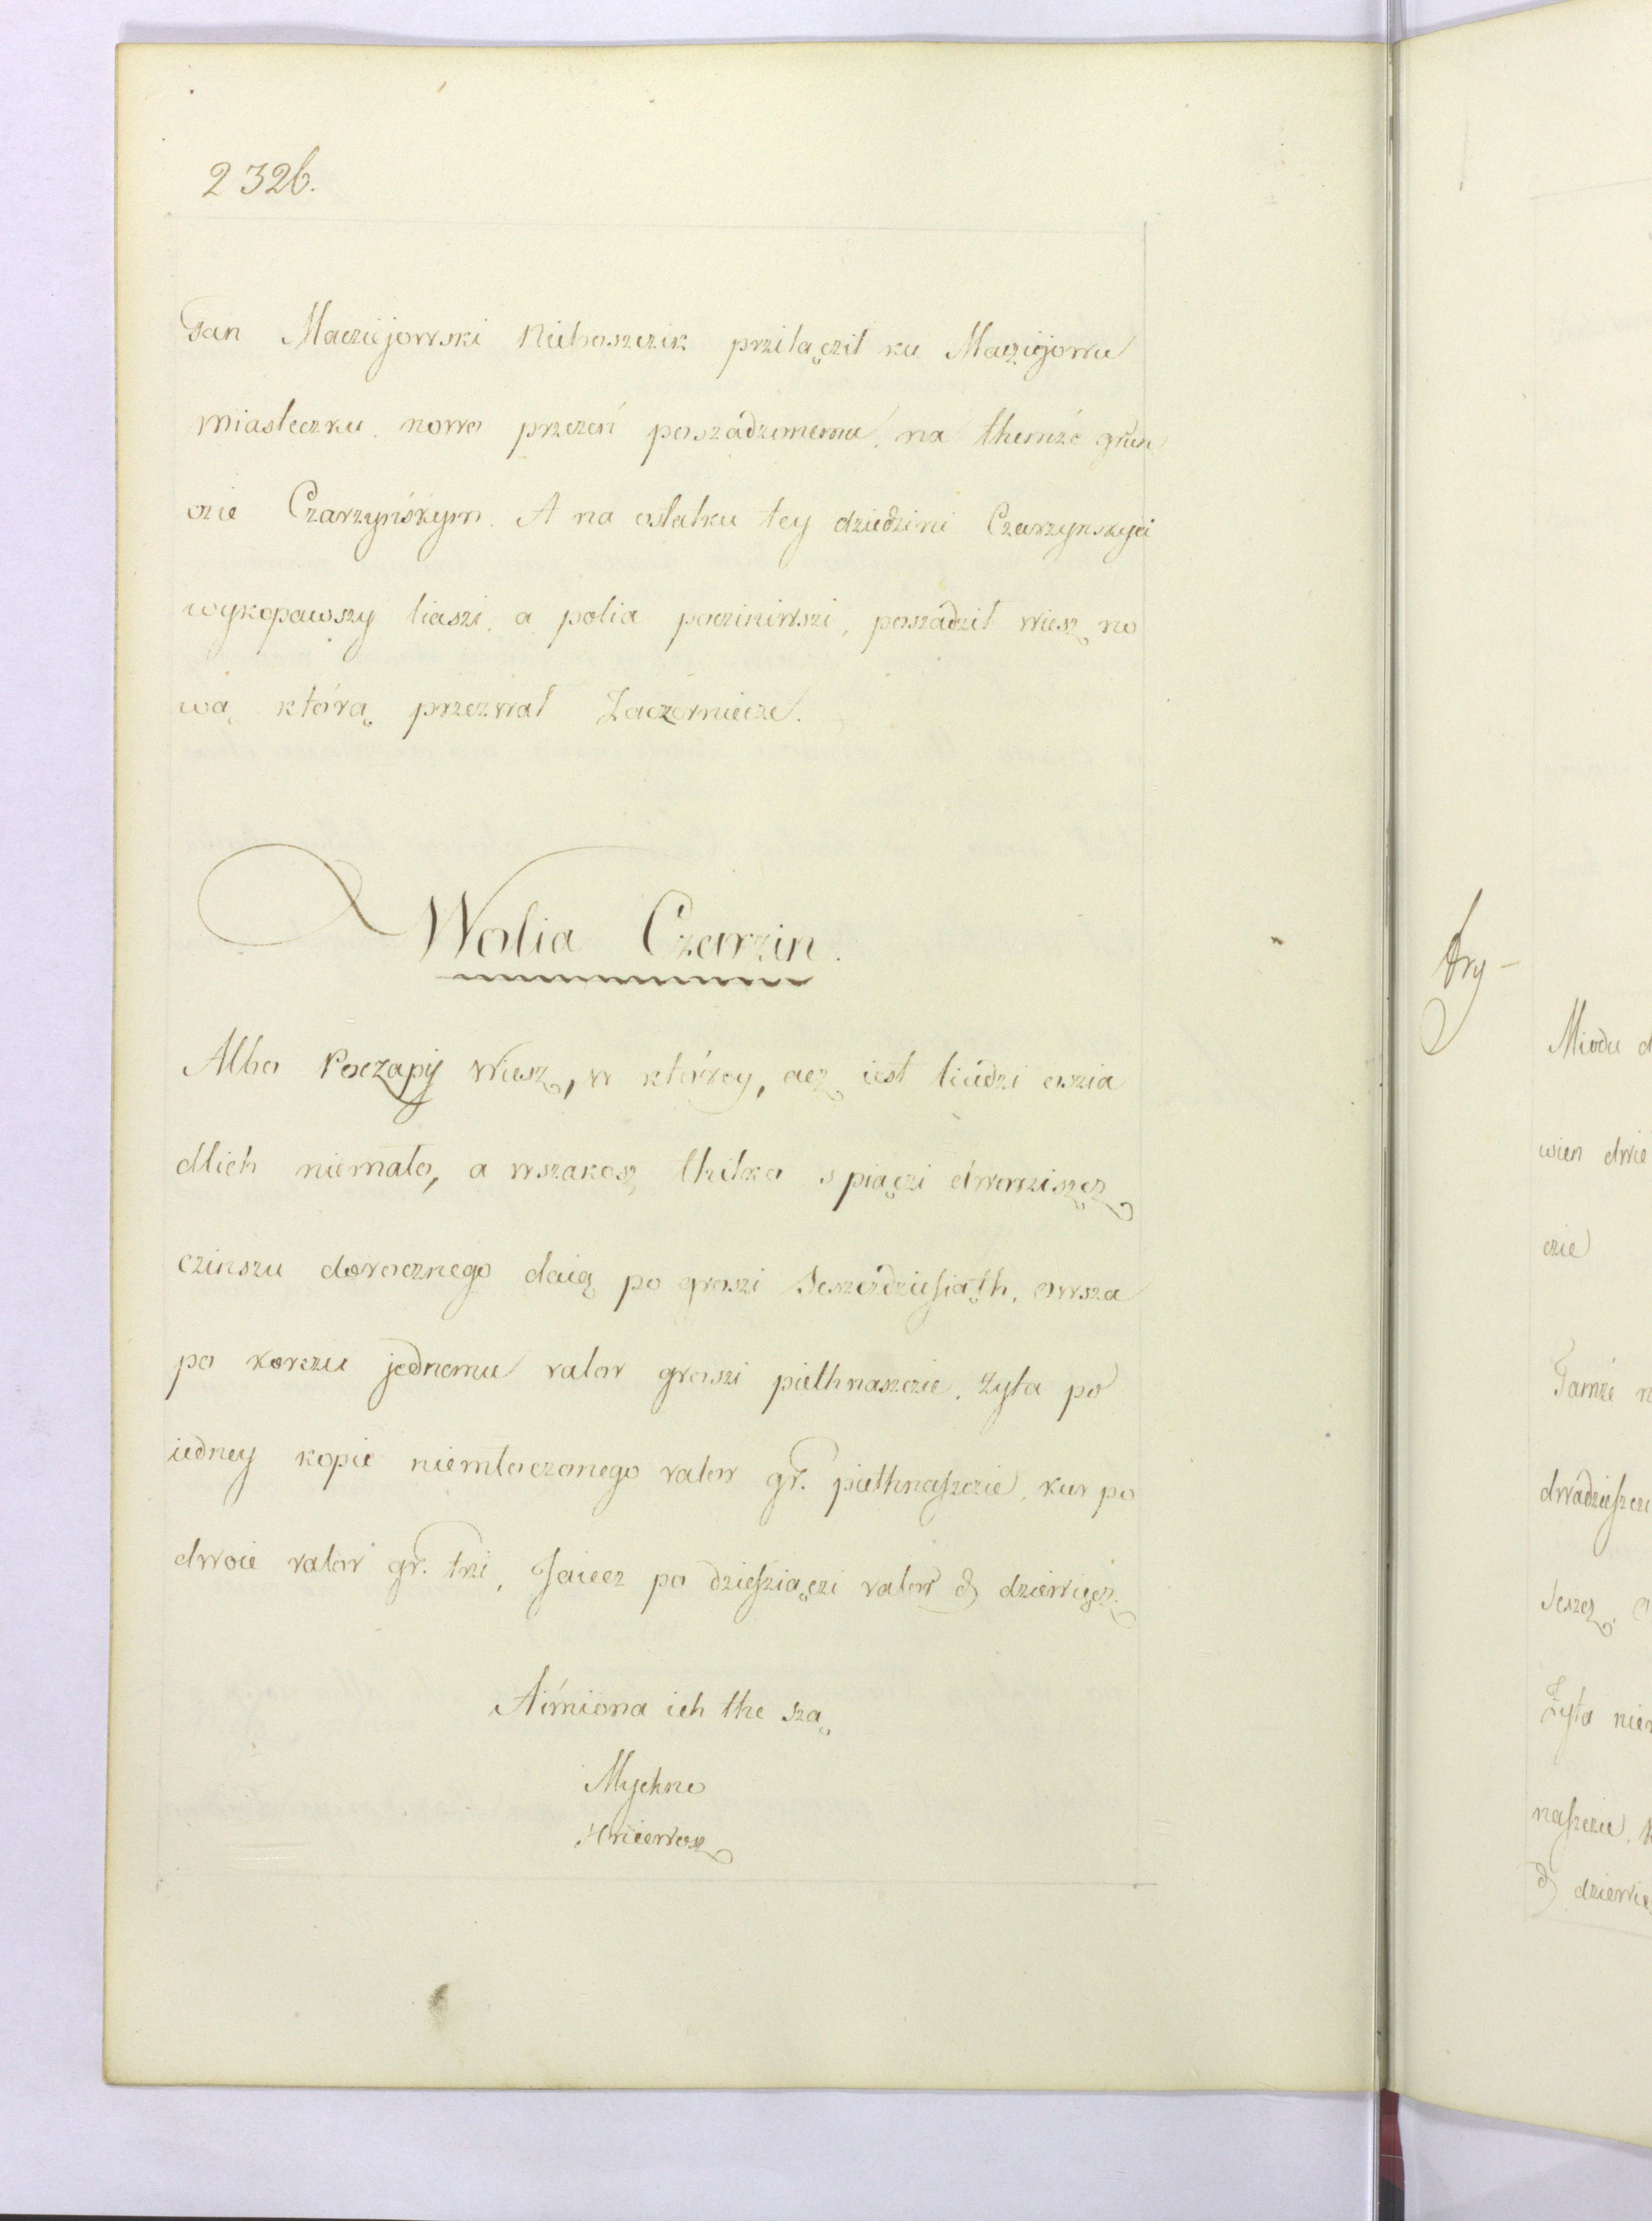 232b.
Jan Macziejowski Nieboszczik przilączil ku Macziejowu
miasteczku nowo przezeń poszadzonemu, na themże grun
czie Czarzyńskym. A na ostatku tey dziedzini Czarzynskyei
wykopawszy liaszi, a polia pocziniwszi, poszadzil wiesz no
wą którą przezwal Zaczernieze.
Wolia Czarzin.
Albo Poczapy wiesz, w którey, acz iest liudzi oszia
dlich niemalo, a wszakosz thilko s piączi dworziszcz
czinszu dorocznego daią po groszi Seszczdziesiąth, owsza
po korczu jednemu valor groszi piethnaszczie, Zyta po
iedney kopie niemloczonego valor gr. piethnaszczie, kur po
dwoie valor gr. trzi, Jaiecz po dziesziączi valor d dziewięcz.
Aimiona ich the szą
Mychno
Hriczewosz
try-
Miodu d
wien dwie
czie
Tamże n
dwadzieszczi
Seszcz, O
Żyta niem
naszczie, k
d dziewię